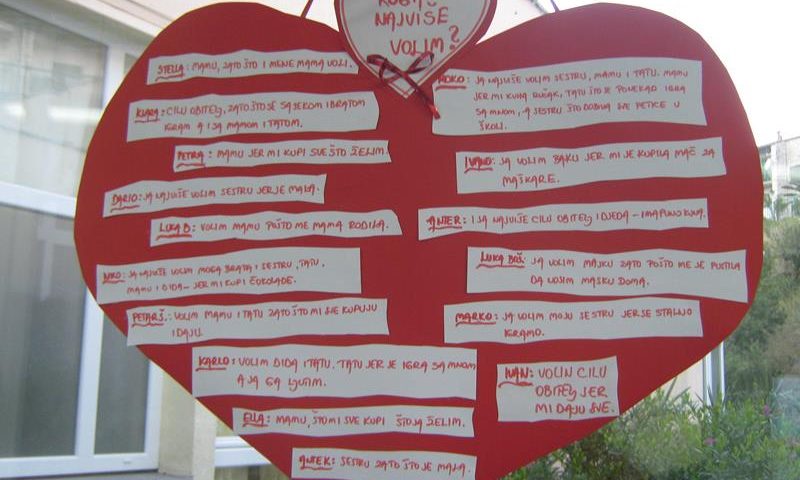 KOGA
NAJVIŠE
VOLIM?
STELLA: MAMU, ZATO ŠTO I MENE MAMA VOLI.
KLARA: CILU OBITELJ, ZATO ŠTO SE SA SEKOM I BRATOM
IGRAM A I SA MAMOM I TATOM.
PETRA: MAMU JER MI KUPI SVE ŠTO ŽELIM.
DARIO: JA NAJVIŠE VOLIM SESTRU JER JE MALA.
LUKA B: VOLIM MAMU POŠTO ME MAMA RODILA.
NIKO: JA NAJVIŠE VOLIM MOGA BRATA I SESTRU, TATU,
MAMU I DIDA - JER MI KUPI ČOKOLADE.
PETAR Š.: VOLIM MAMU I TATU ZATO ŠTO MI SVE KUPUJU
I DAJU.
KARLO: VOLIM DIDA I TATU. TATU JER SE IGRA SA MNOM
A JA GA LJUTIM.
ELLA: MAMU, ŠTO MI SVE KUPI ŠTO JA ŽELIM.
ANTEK: SESTRU ZATO ŠTO JE MALA.
ROKO: JA NAJVIŠE VOLIM SESTRU, MAMU I TATU. MAMU
JER MI KUHA RUČAK, TATU ŠTO SE PONEKAD IGRA
SA MNOM, A SESTRU ŠTO DOBIVA SVE PETICE U
ŠKOLI.
IVANO: JA VOLIM BAKU JER MI JE KUPILA MAČ ZA
MAŠKARE.
ANTER: I JA NAJVIŠE CILU OBITELJ I DJEDA - IMA PUNO KUNA.
LUKA BOŠ: JA VOLIM MAJKU ZATO POŠTO ME JE PUSTILA
DA NOSIM MASKU DOMA.
MARKO: JA VOLIM MOJU SESTRU JER SE STALNO
IGRAMO.
IVAN: VOLIN CILU
OBITELJ JER
MI DAJU SVE.